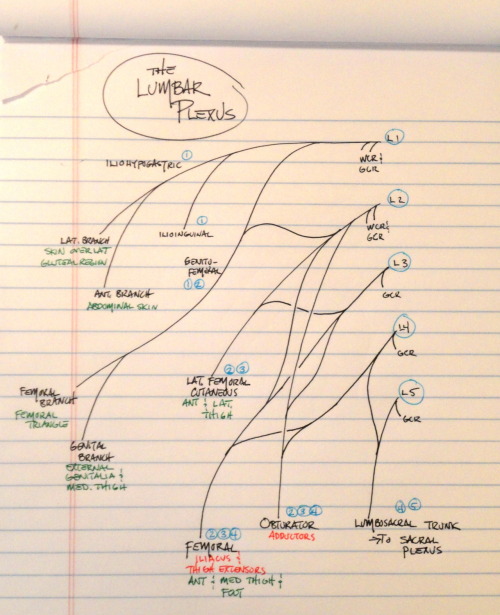 THE
LUMBAR
PLEXUS
L1
WCR &
GCR
ILIOHYPOGASTRIC
1
L2
WCR &
GCR
ILIOINGUINAL
1
LAT. BRANCH
SKIN OVER LAT
GLUTEAL REGION
GENITO-
FEMORAL
1 2
L3
GCR
ANT. BRANCH
ABDOMINAL SKIN
L4
GCR
2 3
LAT. FEMORAL
CUTANEOUS
ANT & LAT.
THIGH
L5
GCR
FEMORAL
BRANCH
FEMORAL
TRIANGLE
GENITAL
BRANCH
EXTERNAL
GENITALIA &
MED. THIGH
2 3 4
FEMORAL
ILIACUS &
THIGH EXTENSORS
ANT & MED THIGH &
FOOT
2 3 4
OBTURATOR
ADDUCTORS
4 5
LUMBOSACRAL TRUNK
→TO SACRAL
PLEXUS